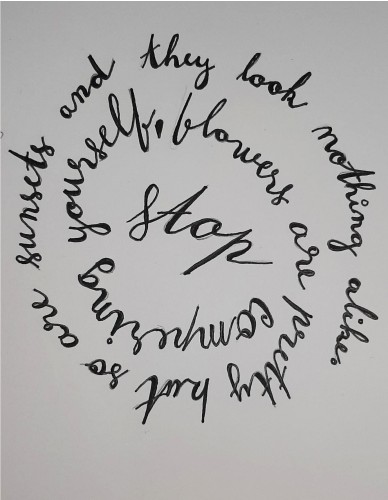 Stop
compering yourself, blowers
are pretty but so are sunsets and they look nothing alike.